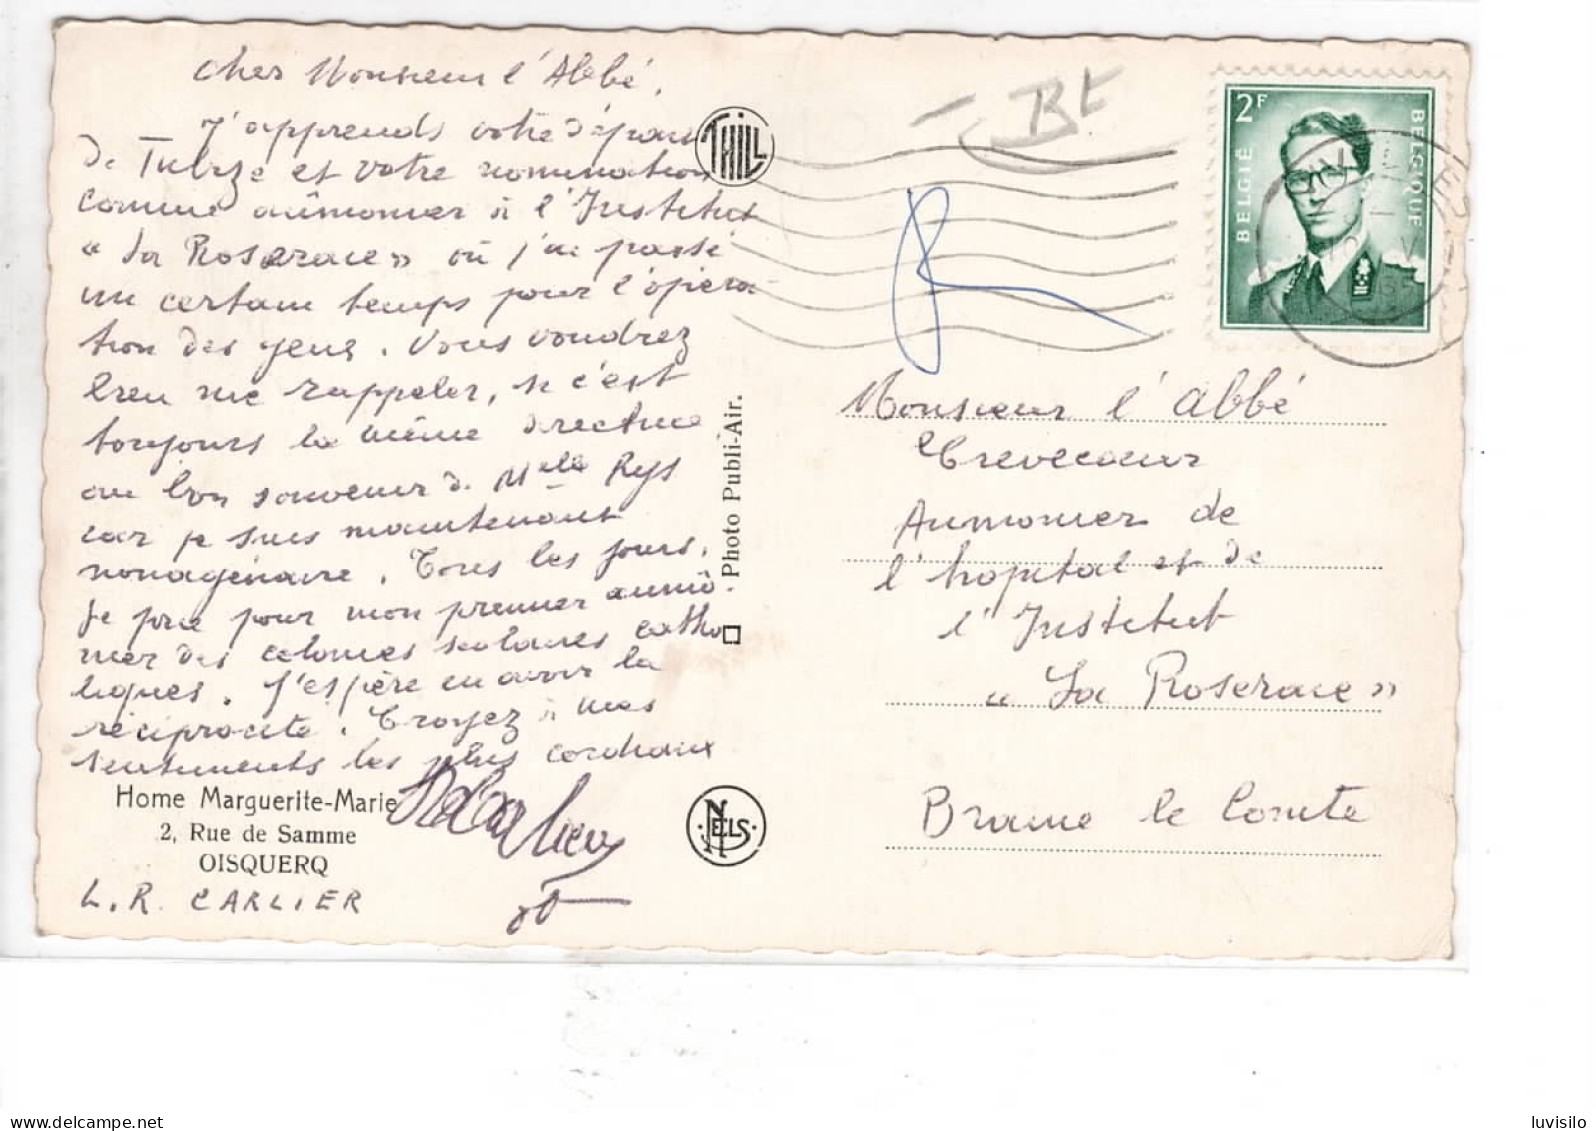 Cher Monsieur l'Abbé,
J'apprends votre départ
de Tubize et votre nomination
comme aûmonier à l'Institut
« La Roseraie » où j'ai passé
un certain temps pour l'opéra-
tion des yeux. Vous voudrez
bien me rappeler, si c'est
toujours la même directrice,
au bon souvenir de Melle Rys
car je suis maintenant
nonagénaire. Tous les jours,
je prie pour mon premier aumô-
nier des colonies scolaires catho
liques. J'espère en avoir la
réciprocité. Croyez à mes
sentiments les plus cordiaux
Home Marguerite-Marie
2, Rue de Samme
OISQUERQ
L. R. CARLIER
THILL
Photo Publi-Air.
NELS
BE
2F
BELGIË
BELGIQUE
Monsieur l'abbé
Crevecoeur
Aumonier de
l'hopital et de
l'Institut
« La Roseraie »
Braine le Comte
delcampe.net
luvisilo